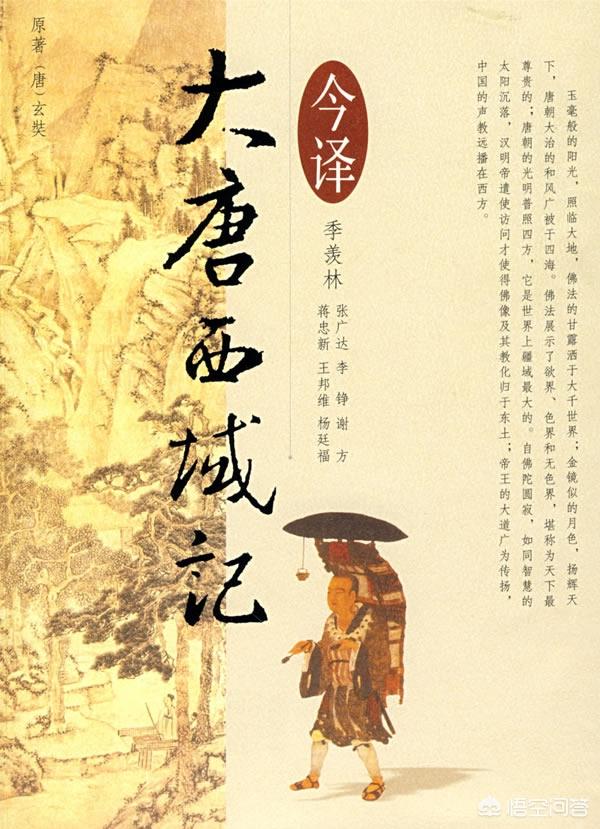 玉毫般的阳光，照临大地，佛法的甘露洒于大千世界；金镜似的月色，扬辉天
下，唐朝大治的和风广被于四海。佛法展示了欲界、色界和无色界，堪称为天下最
尊贵的；唐朝的光明普照四方，它是世界上疆域最大的。自佛陀圆寂，如同智慧的
太阳沉落，汉明帝遣使访问才使得佛像及其教化归于东土；帝王的大道广为传扬，
中国的声教远播在西方。
今译
季羡林
张广达 李 铮 谢 方
蒋忠新 王邦维 杨廷福
大唐西域记
原著（唐）玄奘
悟空问答